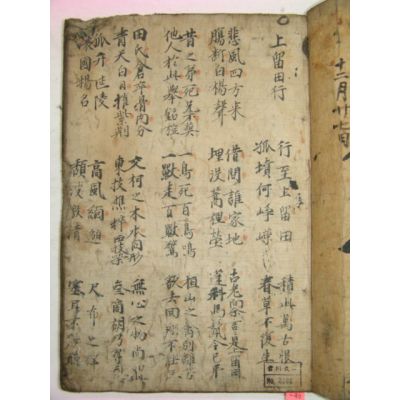 十二月廿
○上留田行
行至上留田 積此萬古恨
孤墳何崢嶸 春草不復生
悲風四方来 借問誰家地 古老向余言言是上留田
腸斷白楊聲 埋没蒿里塋 蓬科馬鬣今已平
昔之弟死兄不葬 一鳥死百鳥鳴 桓山之禽別離苦
他人於此舉銘旌 一獸走百獸驚 欲去回翔不能征
田氏倉卒骨肉分 交柯之木本同形 無心之物尚如此
青天白日摧紫荊 東枝憔悴西枝榮 参商胡乃尋天兵
孤竹延陵 高風緬邈 尺布之謠
讓國揚名 頹波激清 塞耳不能聽